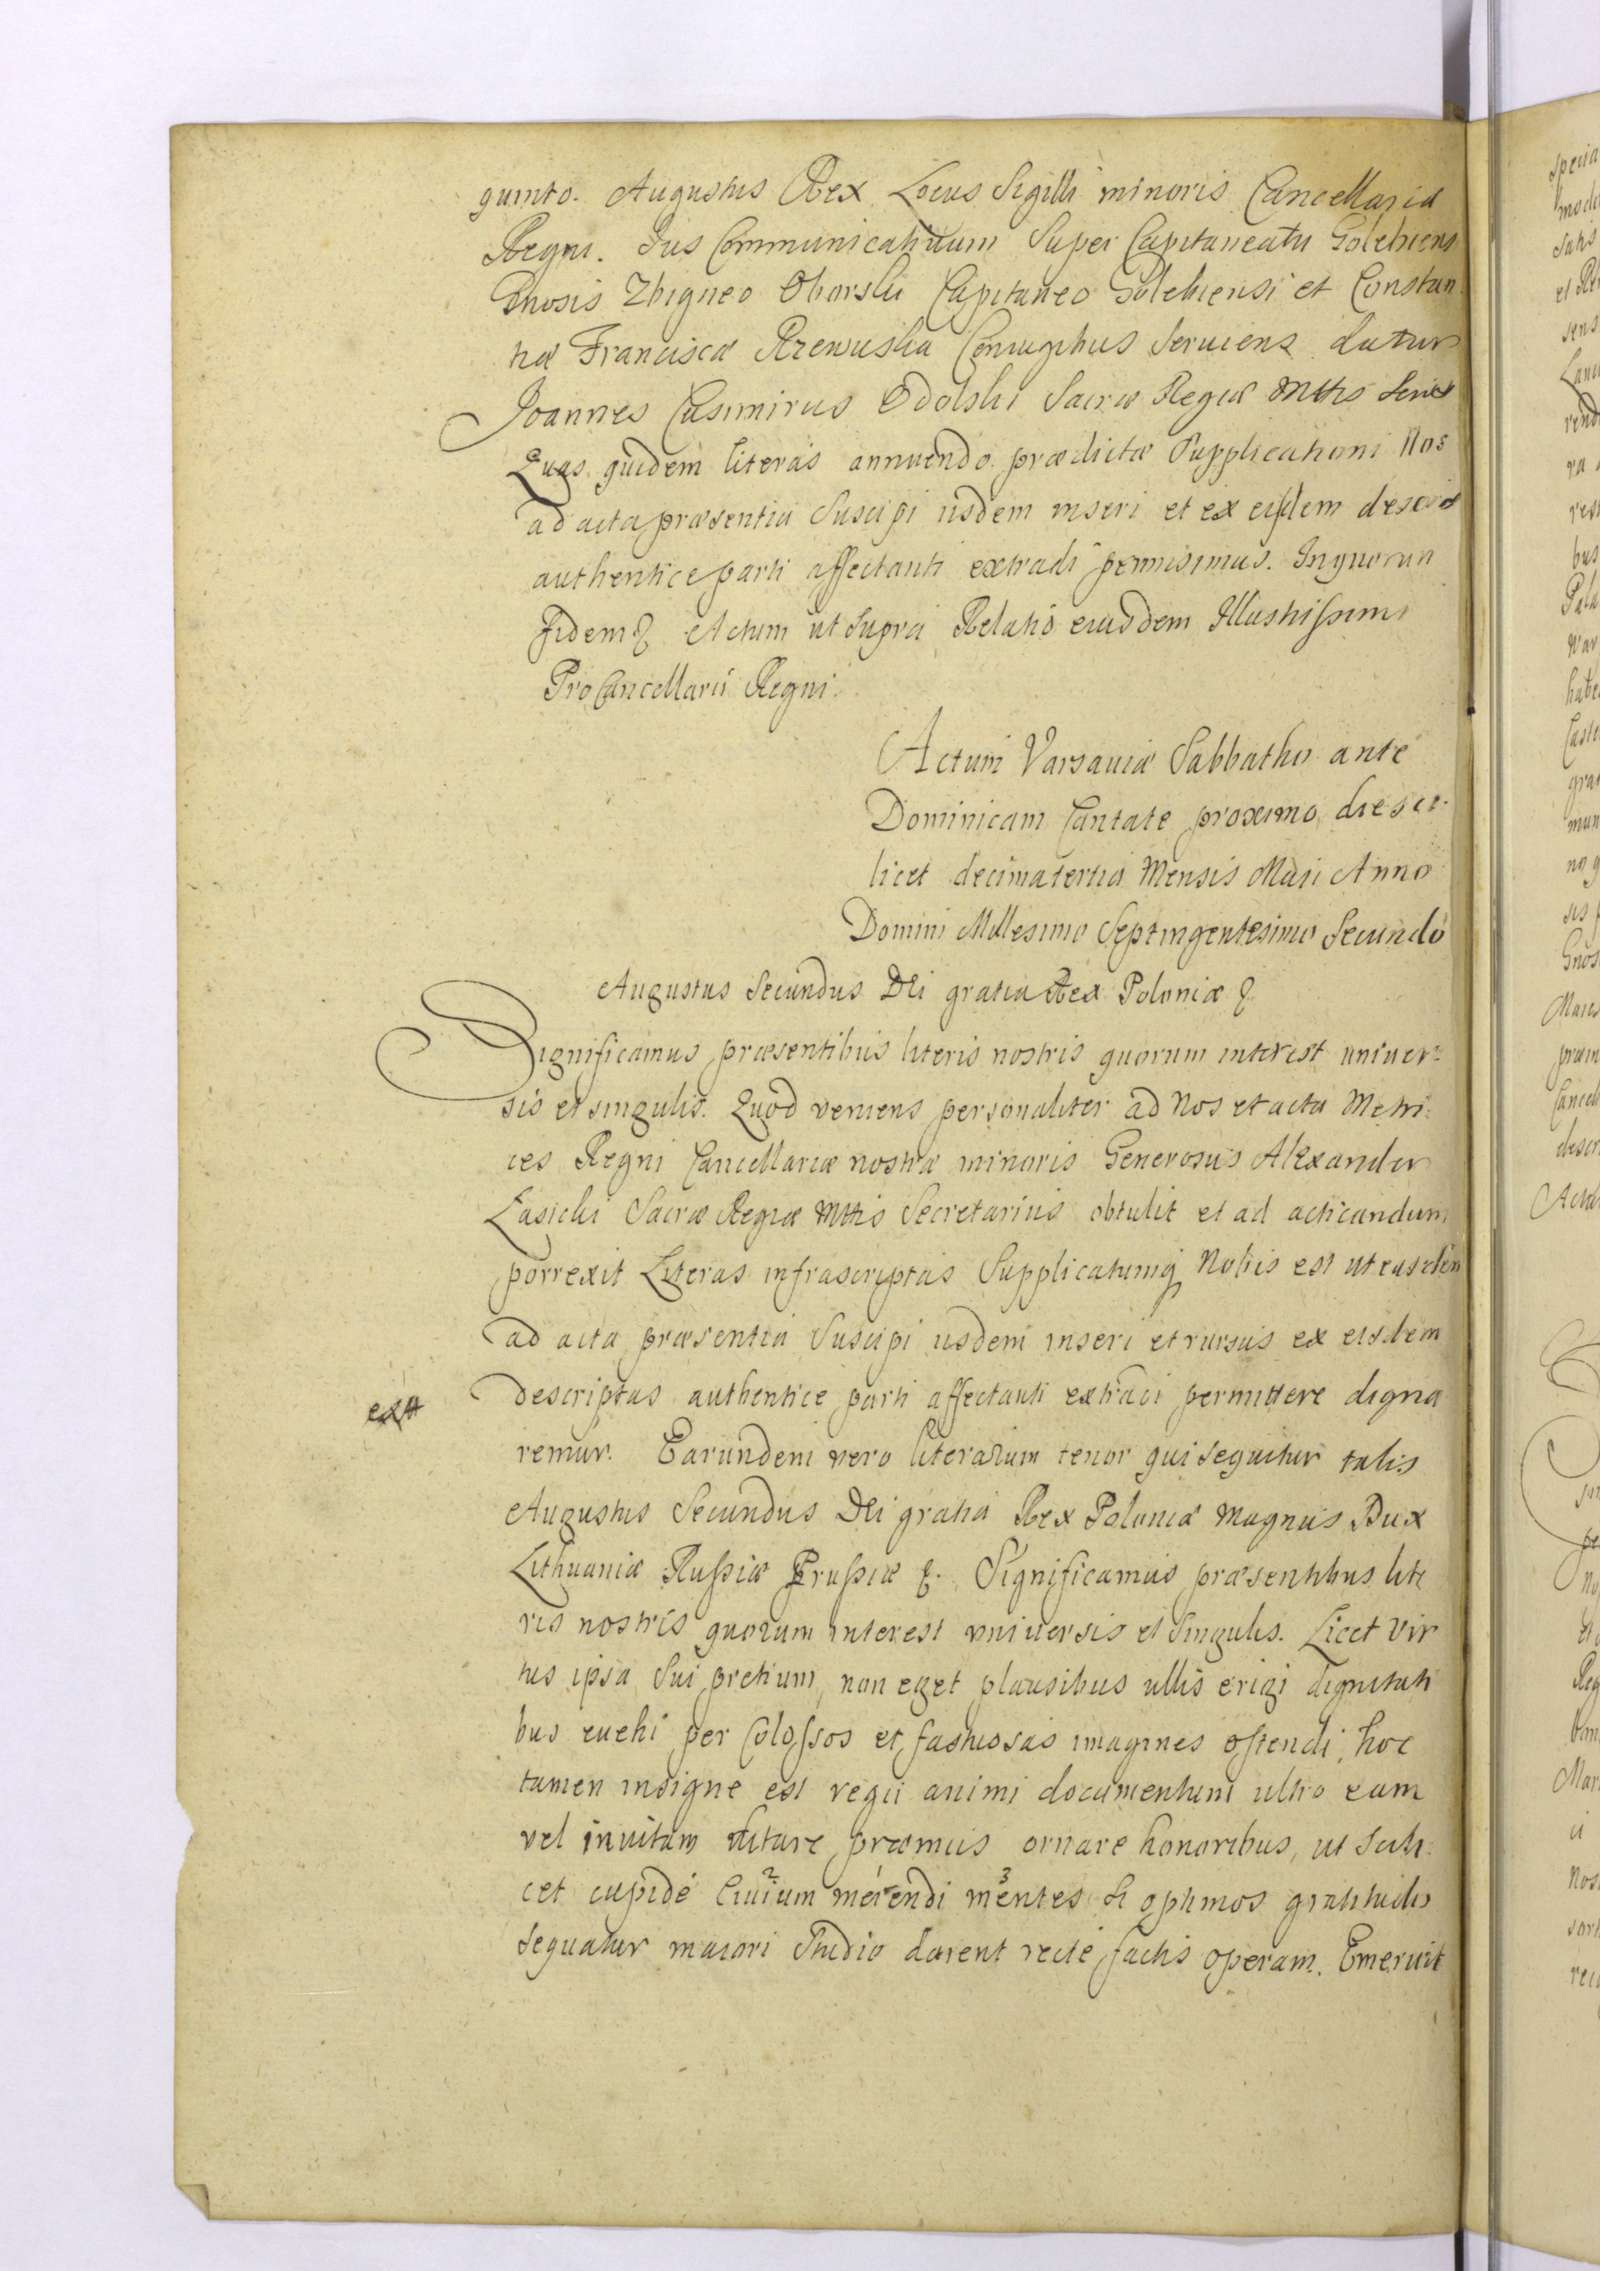 quinto. Augustus Rex Locus Sigilli minoris Cancellariæ
Regni. Ius Communicatiuum super Capitaneatu Golebiens
Gnosis Zbigneo Oborski Capitaneo Golebiensi et Constan
tiæ Francisca Rzewuska Coniugibus seruiens datur
Joannes Casimirus Odolski Sacræ Regiæ Mttis
Quas quidem literas annuendo prædictæ Supplicationi Nos
ad acta præsentia Suscipi iisdem inseri et ex eisdem
authentice parti affectanti extradi permisimus. In quorum
fidem & Actum ut supra Relatio eiusdem Illustrissimi
ProCancellarii Regni.
Actum Varsauiæ Sabbatho ante
Dominicam Cantate proximo die sci-
licet decimatertia Mensis Maii Anno
Domini Millesimo Septingentesimo Secundo
Augustus Secundus DEi gratia Rex Poloniæ &
Significamus præsentibus literis nostris quorum interest uniuer-
sis et singulis. Quod veniens personaliter ad Nos et acta Metri-
ces Regni Cancellariæ nostræ minoris Generosus Alexander
Lasicki Sacræ Regiæ Mttis Secretarius obtulit et ad acticandum
porrexit Literas infrascriptas Supplicatumq Nobis est ut easdem
ad acta præsentia Suscipi iisdem inseri et rursus ex eisdem
descriptas authentice parti affectanti extradi permittere digna
remur. Earundem vero literarum tenor qui sequitur talis
Augustus Secundus DEi gratia Rex Poloniæ Magnus Dux
Lithuaniæ Russiæ Prussiæ &. Significamus præsentibus lite
ris nostris quorum interest vniuersis et singulis. Licet Vir
tus ipsa sui pretium, non eget plausibus ullis erigi dignitati
bus euehi per Colossos et fastuosas imagines ostendi, hoc
tamen insigne est regii animi documentum ultro eam
vel inuitam ditare præmiis ornare honoribus, ut scili-
cet cupidé Ciuium merendi mentes si optimos gratitudo
sequatur maiori studio darent recté factis operam. Emeruit